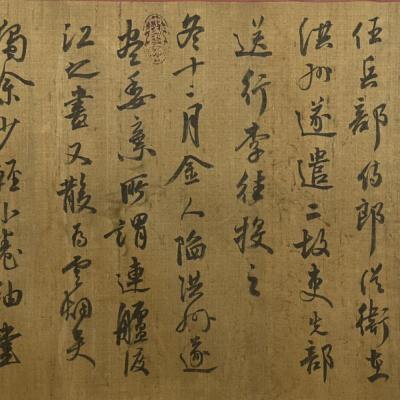 任兵部侍郎從衛在
洪州遂遣二故吏先部
送行李往投之
冬十二月金人陷洪州遂
盡委棄所謂連艫渡
江之書又散為雲烟矣
獨余少輕小卷軸書